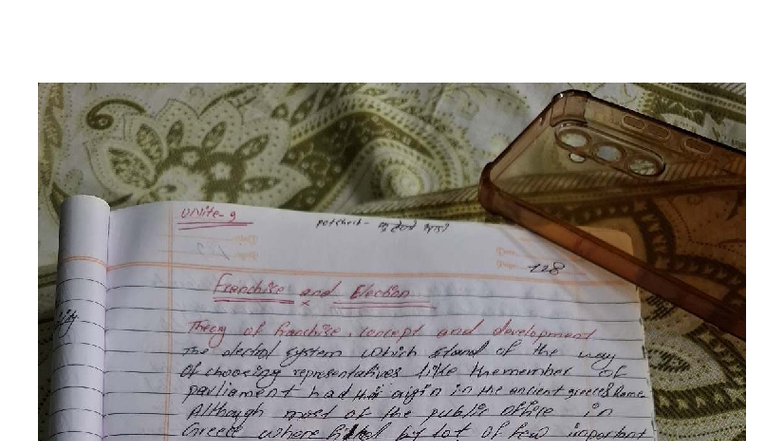 Unite-9
128
Franchise and Election
Theory of franchise, concept and development
The electrol system which stand of the way
of choosing representatives like themember of
parliament had its origin in the ancient greece & Rome
Although most of the public office in
Greece where filled by lot of few important